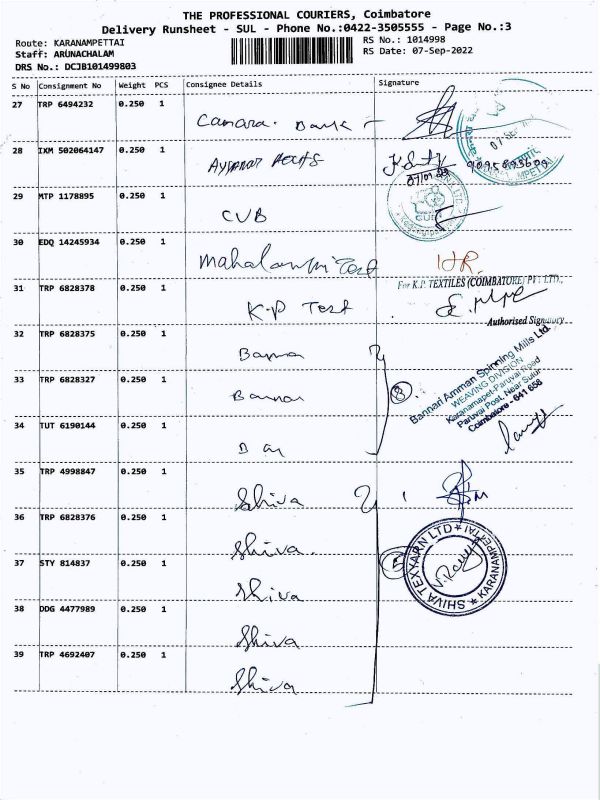 THE PROFESSIONAL COURIERS, Coimbatore
Delivery Runsheet - SUL - Phone No.:0422-3505555 - Page No.:3
Route: KARANAMPETTAI RS No.: 1014998
Staff: ARUNACHALAM RS Date: 07-Sep-2022
DRS No.: DCJB101499803
S No Consignment No Weight PCS Consignee Details Signature
27 TRP 6494232 0.250 1
Canara. Bank
07 SEP
28 IXM 502064147 0.250 1
MPETTAI
29 MTP 1178895 0.250 1
CUB
30 EDQ 14245934 0.250 1
Test
31 TRP 6828378 0.250 1
For K.P. TEXTILES (COIMBATORE) PVT LTD.,
K.P Test
Authorised Signatory
32 TRP 6828375 0.250 1
33 TRP 6828327 0.250 1
3
Bannari Amman Spinning Mills Ltd
WEAVING DIVISION
Karanamapet-Paruvai Road
Paruvai Post, Near Sulur
Coimbatore - 641 658
34 TUT 6190144 0.250 1
35 TRP 4998847 0.250 1
Shiva
36 TRP 6828376 0.250 1
Shiva.
37 STY 814837 0.250 1
5
SHIVA TEXYARN LTD * KARANAMPETTAI *
Shiva
38 DDG 4477989 0.250 1
Shiva
39 TRP 4692407 0.250 1
Shiva